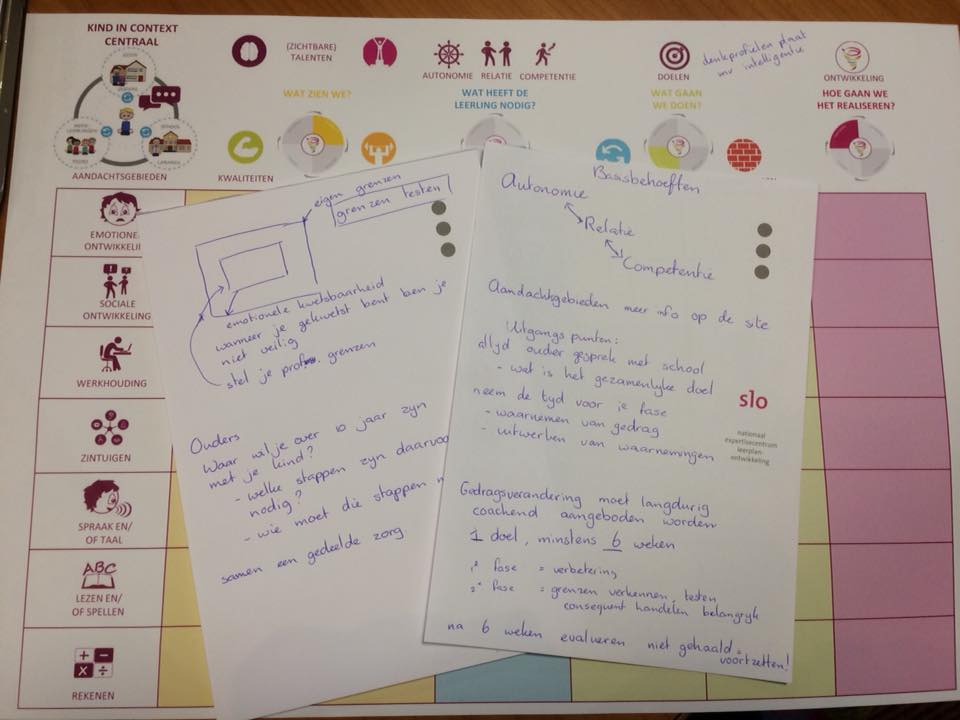 KIND IN CONTEXT
CENTRAAL
GEZIN
OUDERS
SCHOOL
LERAREN
AANDACHTSGEBIEDEN
(ZICHTBARE)
TALENTEN
WAT ZIEN WE?
KWALITEITEN
AUTONOMIE RELATIE COMPETENTIE
WAT HEEFT DE
LEERLING NODIG?
DOELEN
WAT GAAN
WE DOEN?
denkprofielen plaat
mv intelligentie
ONTWIKKELING
HOE GAAN WE
HET REALISEREN?
EMOTIONE
ONTWIKKELI
SOCIALE
ONTWIKKELING
WERKHOUDING
ZINTUIGEN
SPRAAK EN/
OF TAAL
ABC
LEZEN EN/
OF SPELLEN
REKENEN
eigen grenzen
grenzen testen
emotionele kwetsbaarheid
wanneer je gekwetst bent ben je
niet veilig
stel je grenzen
Ouders
Waar wil je over 10 jaar zijn
met je kind?
- welke stappen zijn daarvoo
nodig?
- wie moet die stappen
samen een gedeelde zorg
Basisbehoeften
Autonomie
Relatie
Competentie
Aandachtgebieden meer info op de site
Uitgangspunten:
altijd ouder gesprek met school
- wat is het gezamenlijke doel
neem de tijd voor je fase
- waarnemen van gedrag
- uitwerken van waarnemingen
slo
nationaal
expertisecentrum
leerplan
ontwikkeling
Gedragsverandering moet langdurig
coachend aangeboden worden
1 doel, minstens 6 weken
1e fase = verbetering
2e fase = grenzen verkennen, testen
consequent handelen belangrijk
na 6 weken evalueren niet gehaald =
voortzetten!